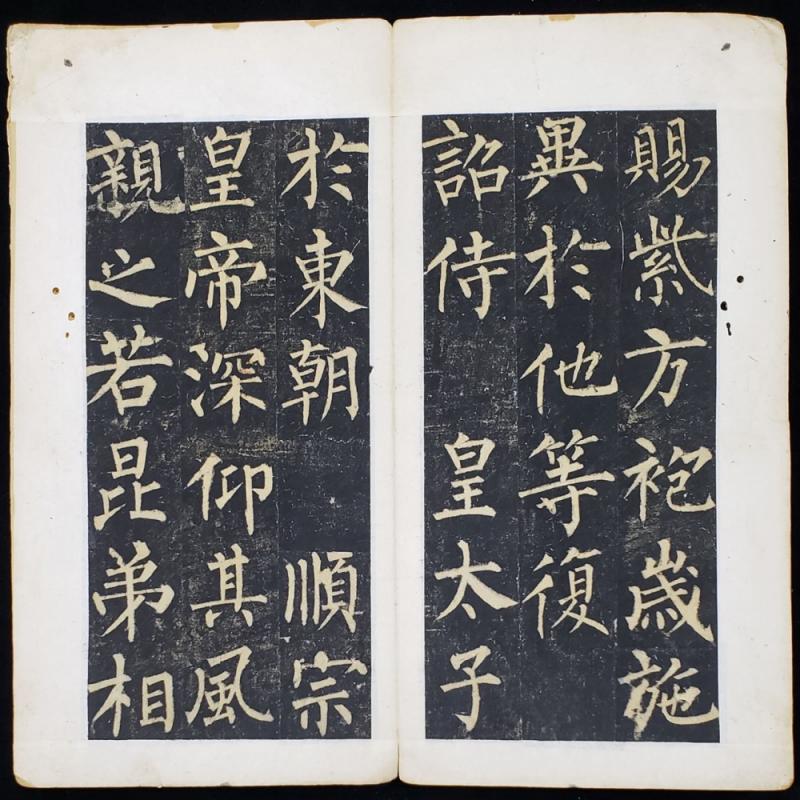 賜紫方袍歲施
異於他等復
詔侍 皇太子
於東朝 順宗
皇帝深仰其風
親之若昆弟相